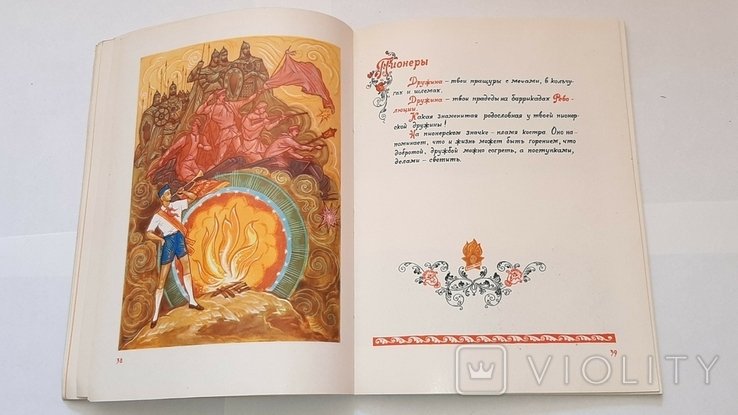 Пионеры
Дружина – твои пращуры с мечами, в кольчу-
гах и шлемах.
Дружина – твои прадеды на баррикадах Рево-
люции.
Какая знаменитая родословная у твоей пионер-
ской дружины!
На пионерском значке – пламя костра. Оно на-
поминает, что и жизнь может быть горением, что
добротой, дружбой можно согреть, а поступками,
делами – светить.
38
39
VIOLITY